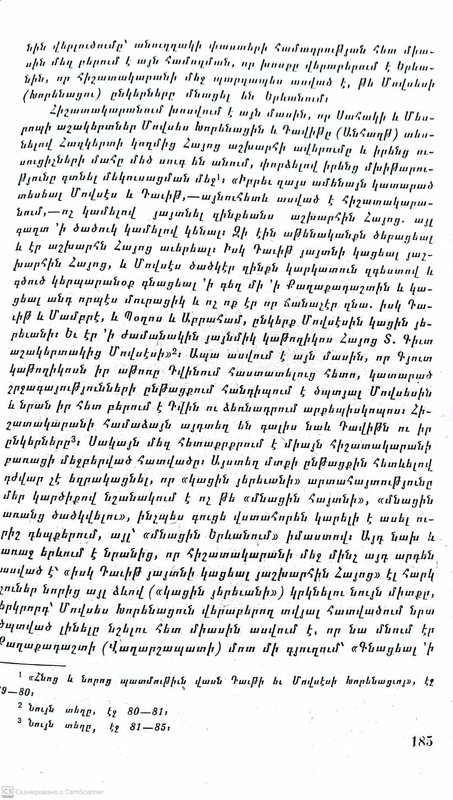 նին վերլուծումը՝ անուղղակի փաստերի համադրության հետ միա-
սին մեզ բերում է այն համոզման, որ խոսքը վերաբերում է Երևա-
նին, որ հիշատակարանի մեջ պարզապես ասված է, թե Մովսեսի
(Խորենացու) ընկերները մնացել են Երևանում։
Հիշատակարանում խոսվում է այն մասին, որ Սահակի և Մես-
րոպի աշակերտներ Մովսես Խորենացին և Դավիթը (Անհաղթ) տես-
նելով Հազկերտի կողմից Հայոց աշխարհի ավերումը և իրենց ու-
սուցիչների մահը մեծ սուգ են անում, փորձելով իրենց մխիթարու-
թյունը գտնել մեկուսացման մեջ¹։ «Իբրեւ զայս ամենայն կատարած
տեսեալ Մովսէս և Դաւիթ,—այնուհետև ասված է հիշատակարա-
նում,—ոչ կամելով յայտնել զինքեանս աշխարհին Հայոց. այլ
գաղտ ՚ի ծածուկ կամելով կենալ։ Զի էին աթենականքն ծերացեալ
և էր աշխարհն Հայոց աւերեալ։ Իսկ Դաւիթ յայտնի կացեալ յաշ-
խարհին Հայոց, և Մովսէս ծածկէր զինքն կարկատուն զգեստով և
գծուծ կերպարանօք գնացեալ ՚ի գեղ մի ՚ի Քաղաքադաշտին և կա-
ցեալ անդ որպէս մուրացիկ և ոչ ոք էր որ ճանաչէր զնա. իսկ Դա-
ւիթ և Մամբրէ, և Պօղոս և Աբրահամ, ընկերք Մովսէսին կացին յե-
րեւանի։ Եւ էր ՚ի ժամանակին յայնմիկ կաթողիկոս Հայոց Տ. Գիւտ
աշակերտակից Մովսէսի»²։ Ապա ասվում է այն մասին, որ Գյուտ
կաթողիկոսն իր աթոռը Դվինում հաստատելուց հետո, կատարած
շրջագայությունների ընթացքում հանդիպում է ծպտյալ Մովսեսին
և նրան իր հետ բերում է Դվին ու ձեռնադրում արքեպիսկոպոս։ Հի-
շատակարանի համաձայն այդտեղ են գալիս նաև Դավիթն ու իր
ընկերները³։ Սակայն մեզ հետաքրքրում է միայն հիշատակարանի
բառացի մեջբերված հատվածը։ Այստեղ մտքի ընթացքին հետևելով
դժվար չէ եզրակացնել, որ «կացին յերեւանի» արտահայտությունը
մեր կարծիքով նշանակում է ոչ թե «մնացին հայտնի», «մնացին
առանց ծածկվելու», ինչպես գուցե վստահորեն կարելի է ասել ու-
րիշ դեպքերում, այլ՝ «մնացին Երևանում» իմաստով։ Այդ նախ և
առաջ երևում է նրանից, որ հիշատակարանի մեջ մինչ այդ արդեն
ասված է՝ «իսկ Դաւիթ յայտնի կացեալ յաշխարհին Հայոց» էլ հարկ
չուներ նորից այլ ձևով («կացին յերեւանի») կրկնելու նույն միտքը,
երկրորդ՝ Մովսես Խորենացուն վերաբերող տվյալ հատվածում նրա
ծպտված լինելը նշելու հետ միասին ասվում է, որ նա մնում էր
Քաղաքադաշտի (Վաղարշապատի) մոտ մի գյուղում՝ «Գնացեալ ՚ի
¹ «Հնոց և նորոց պատմութիւն վասն Դաւթի եւ Մովսէսի Խորենացւոյ», էջ
79—80։
² Նույն տեղը, էջ 80—81։
³ Նույն տեղը, էջ 81—85։
185
CS Сканировано с CamScanner